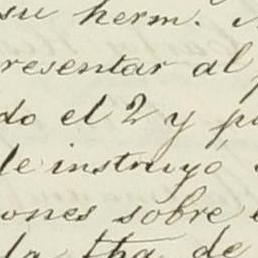 su herm.
resentar al
do el 2 y p
de instruyó
ones sobre
la tha de